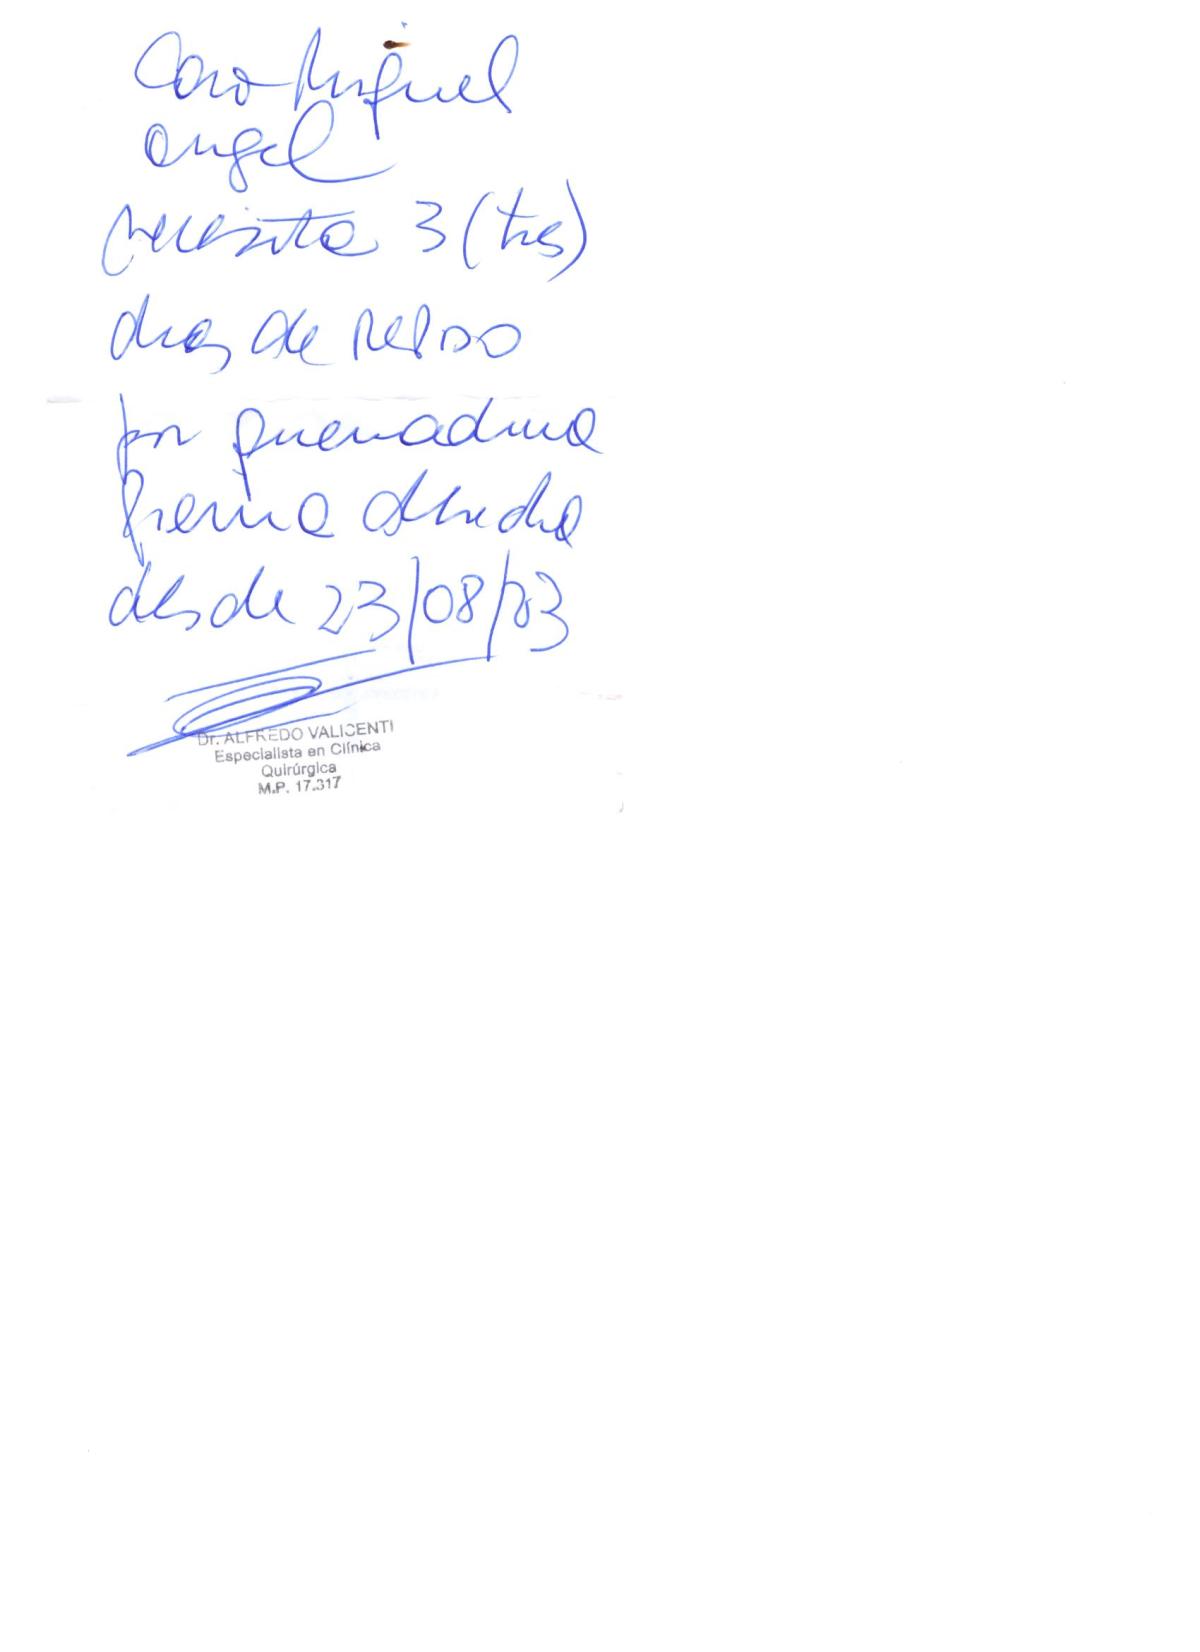 Caro Miguel
angel
necesita 3 (tres)
dias de reposo
por quemadura
pierna derecha
desde 23/08/03
Dr. ALFREDO VALICENTI
Especialista en Clínica
Quirúrgica
M.P. 17.317